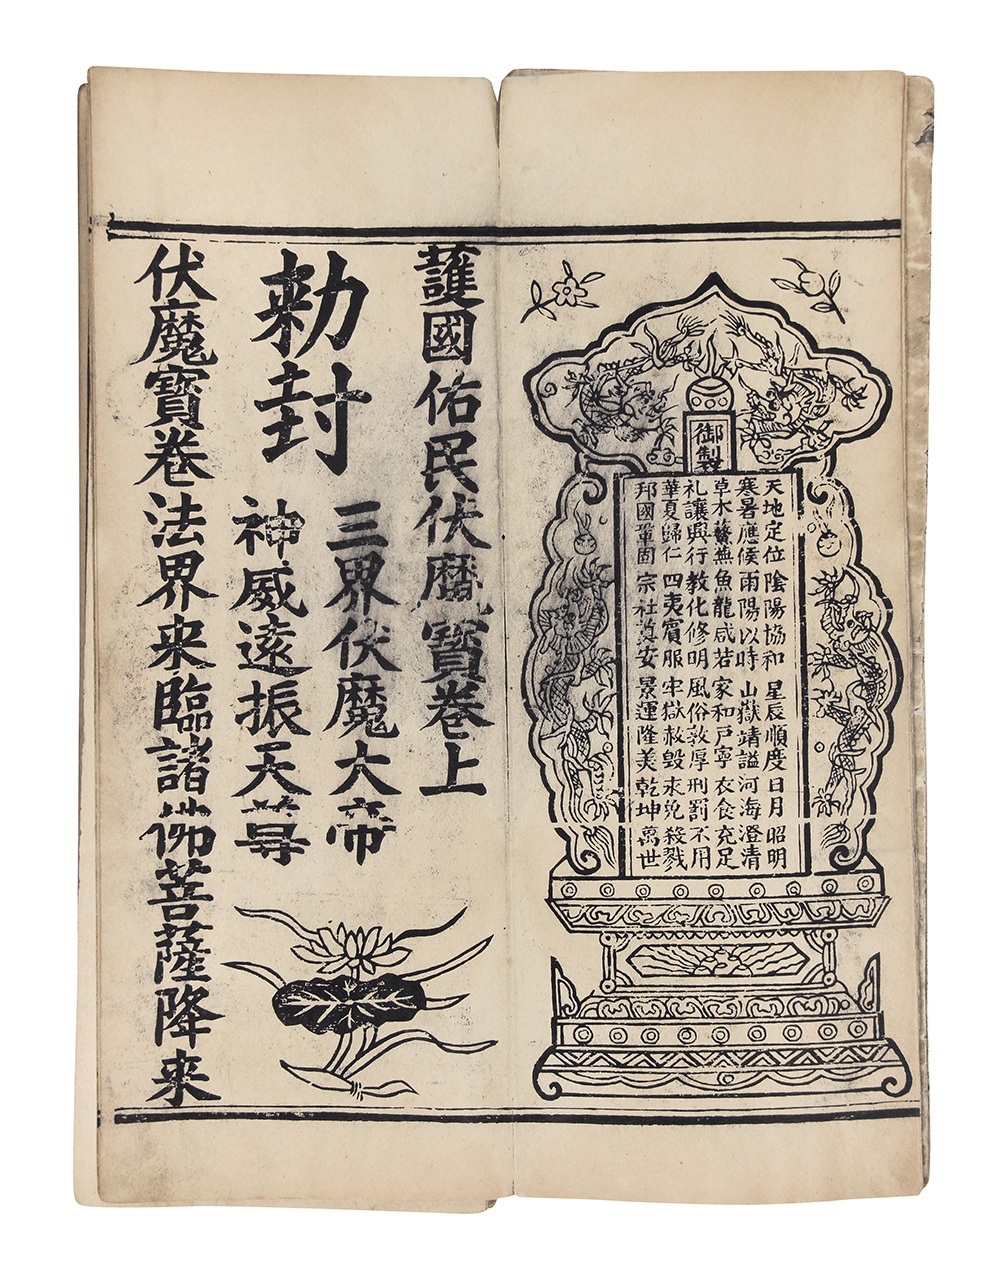 御製
天地定位陰陽協和星辰順度日月昭明
寒暑應候雨暘以時山嶽靖謐河海澄清
草木蕃蕪魚龍咸若家和戶寧衣食充足
礼讓興行教化修明風俗敦厚刑罰不用
華夏歸仁四夷賓服牢獄赦毀永免殺戮
邦國鞏固宗社奠安景運隆美乾坤萬世
護國佑民伏魔寶卷上
勅封
三界伏魔大帝
神威遠振天尊
伏魔寶卷法界来臨諸佛菩薩降来